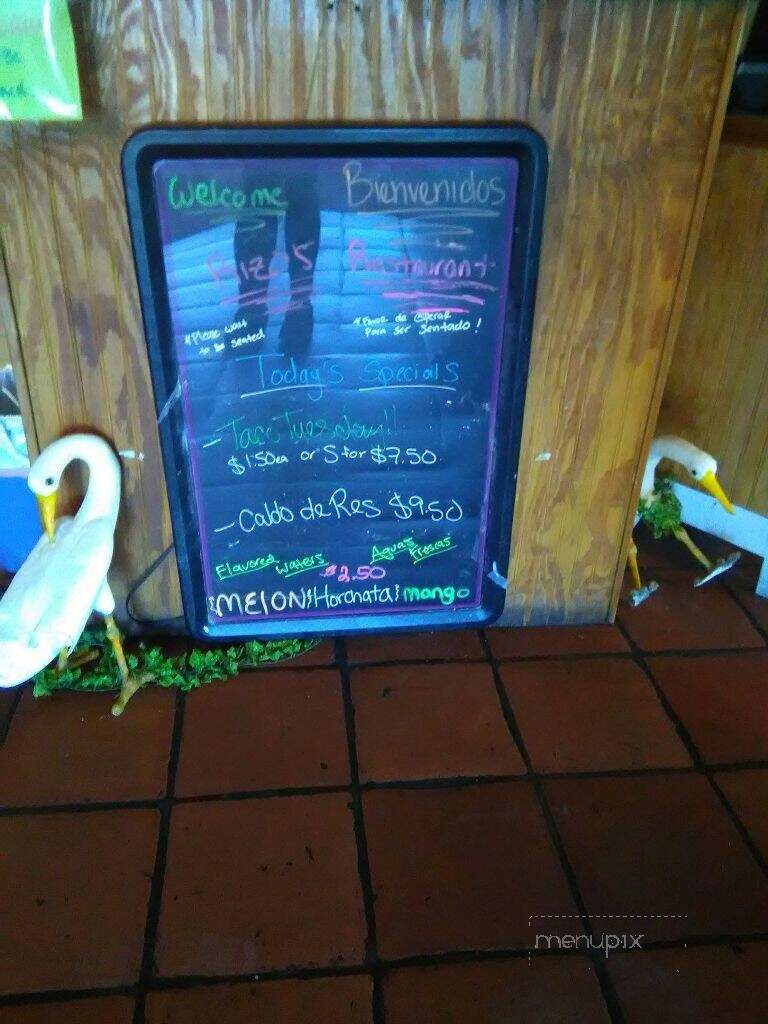 Welcome Bienvenidos
Rizo's Restaurant
*Please wait
to be seated
*Favor de esperar
Para ser sentado!
Today's Specials
- Taco Tuesday!!
$1.50ea or 5 for $7.50
- Caldo de Res $9.50
Flavored Waters Aguas Frescas
$2.50
MELON Horchata mango
menupix